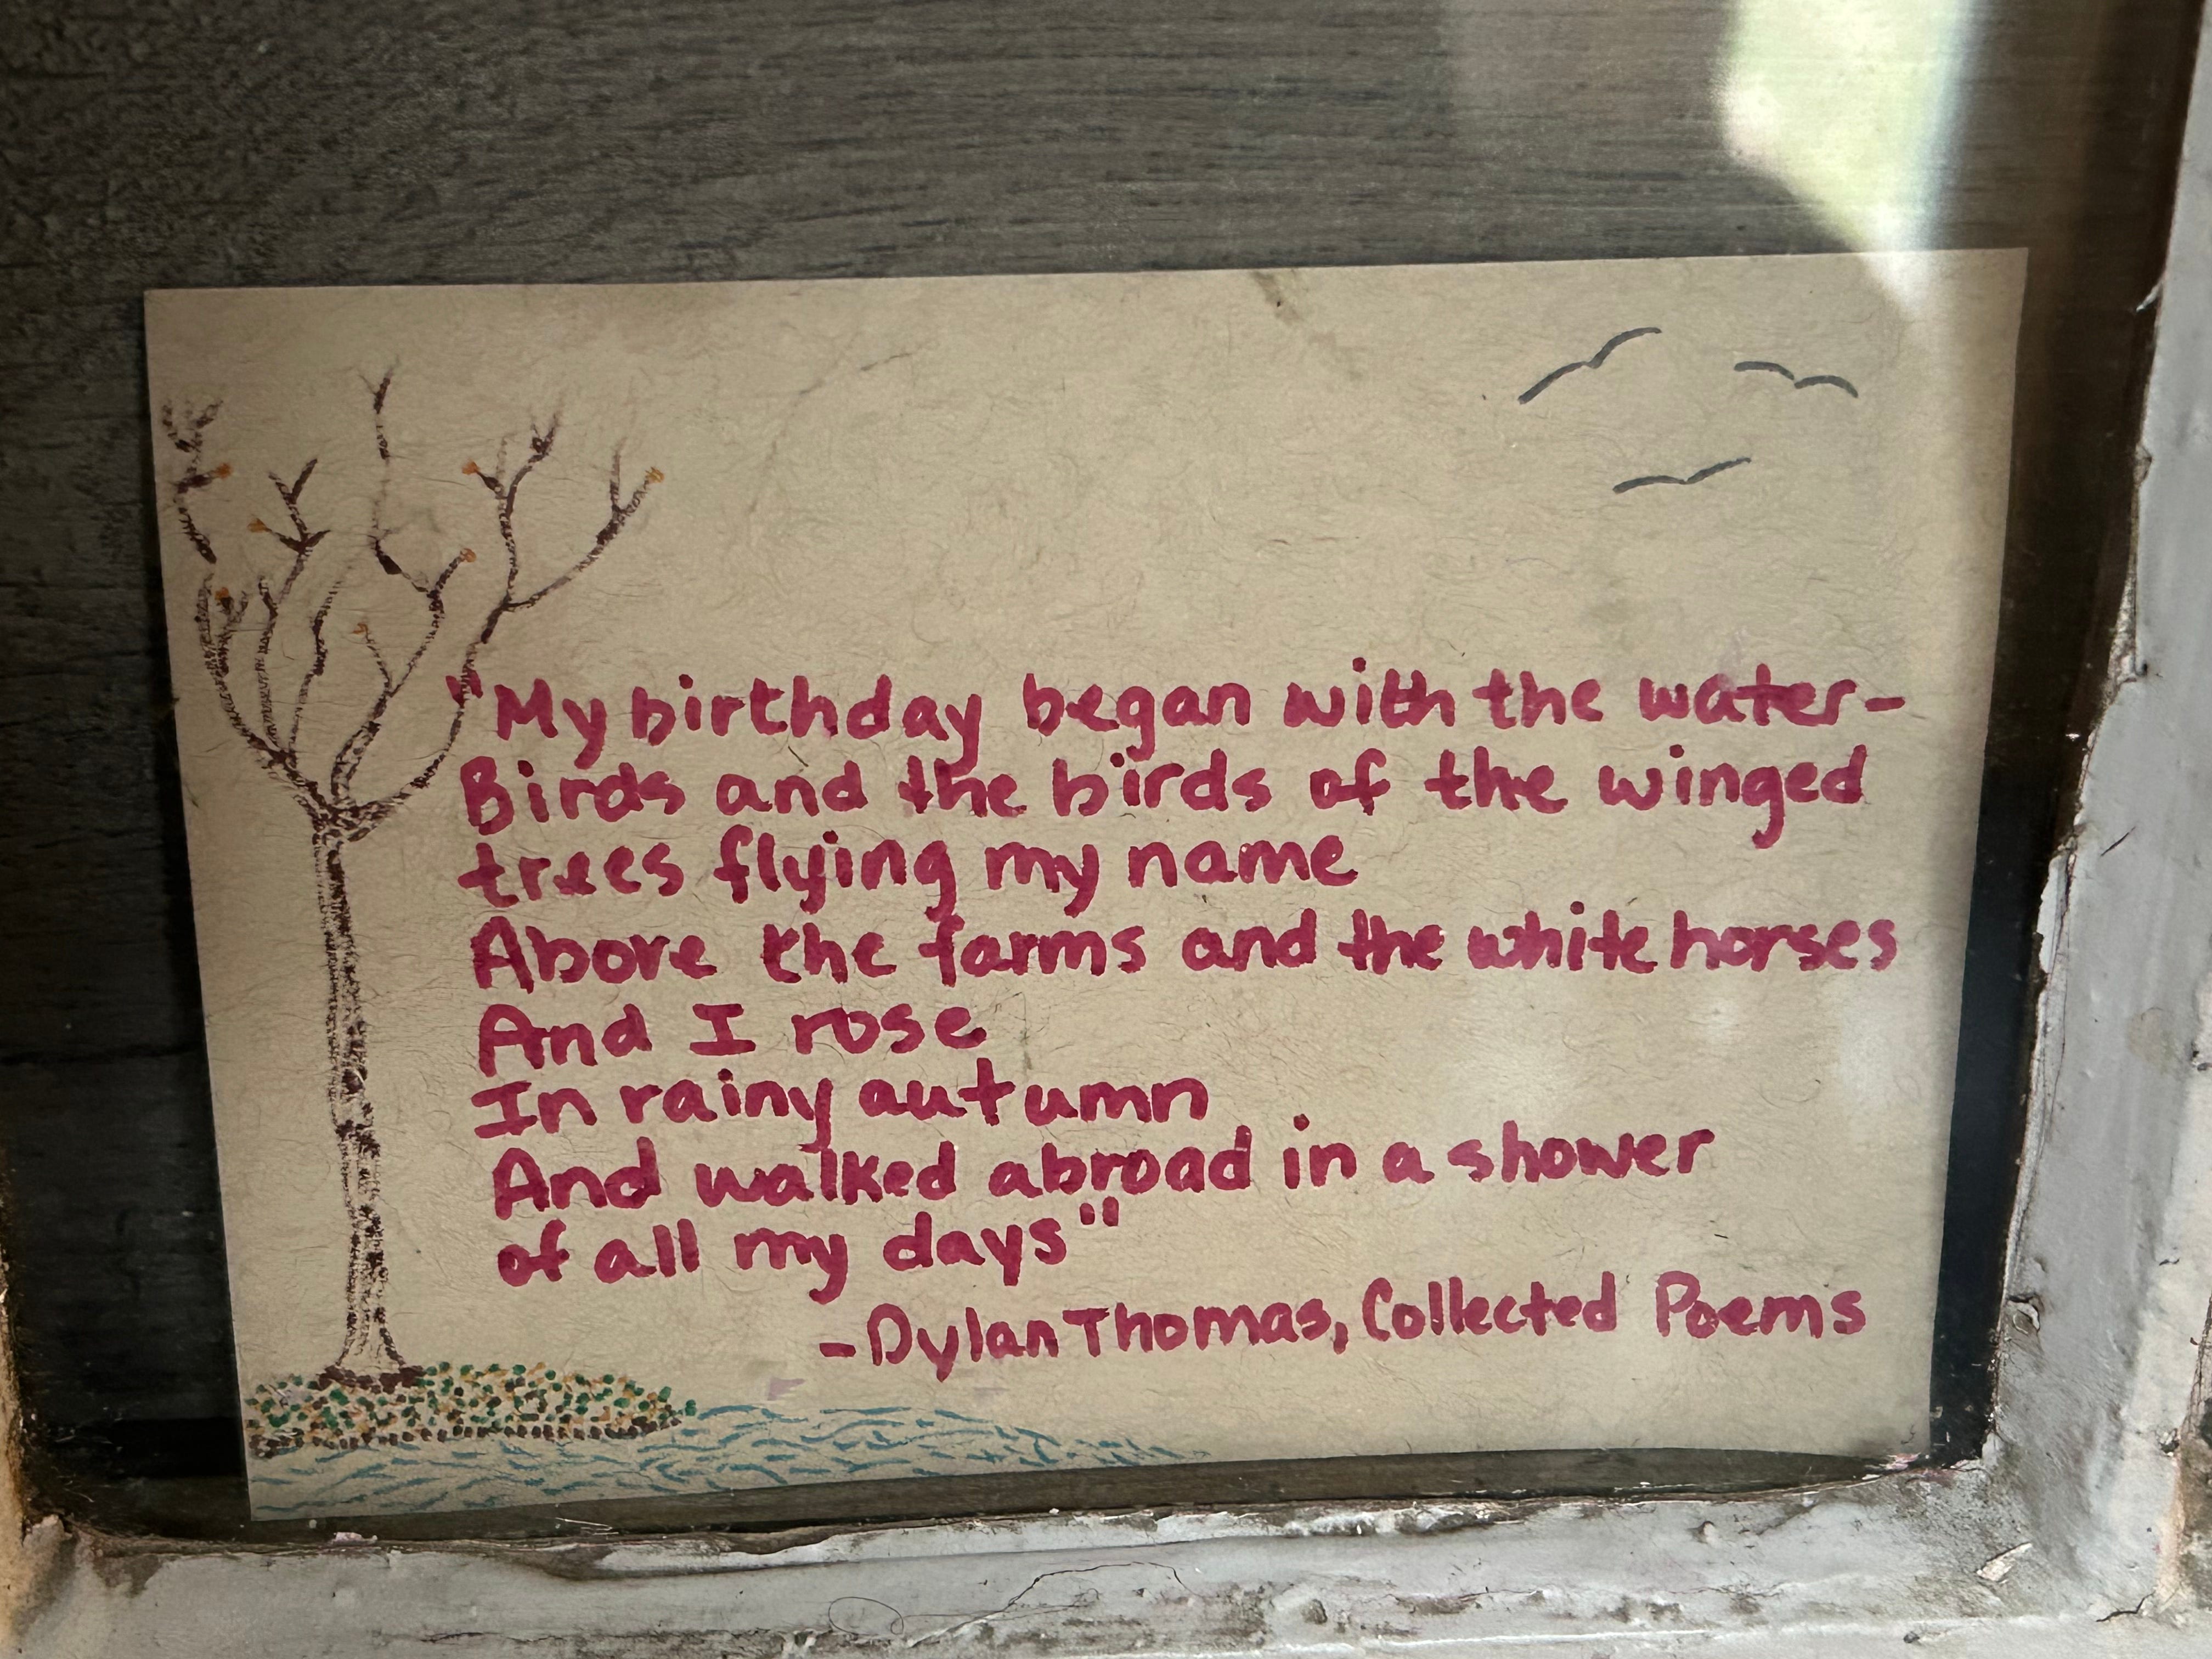 "My birthday began with the water-
Birds and the birds of the winged
trees flying my name
Above the farms and the white horses
And I rose
In rainy autumn
And walked abroad in a shower
of all my days"
-Dylan Thomas, Collected Poems